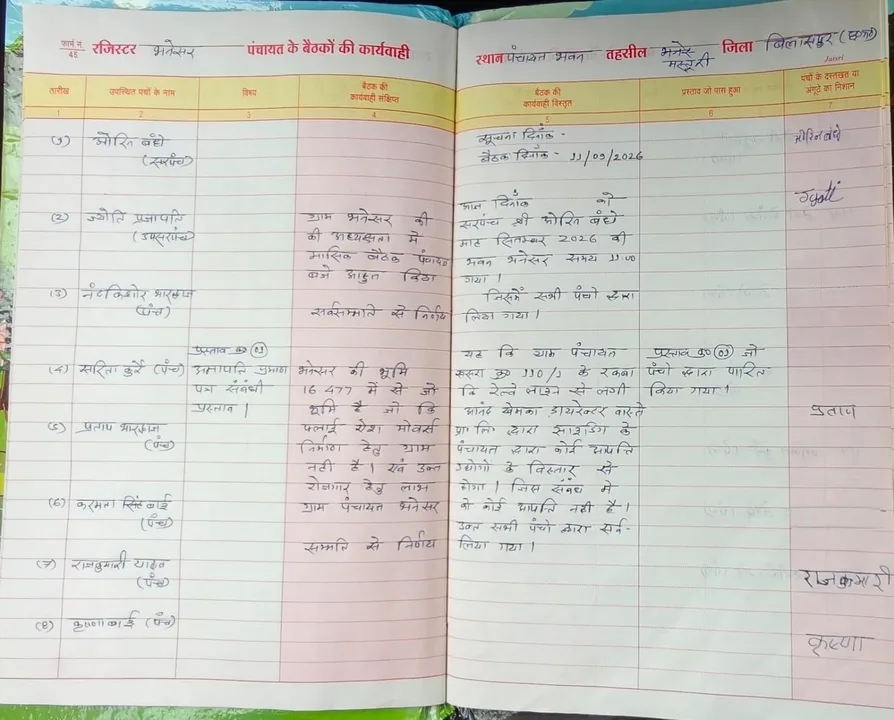 फार्म नं. 45 रजिस्टर भनेसर पंचायत के बैठकों की कार्यवाही स्थान पंचायत भवन तहसील मस्तुरी जिला बिलासपुर
तारीख उपस्थित पंचों के नाम विषय बैठक की कार्यवाही संक्षिप्त बैठक की कार्यवाही विस्तृत प्रस्ताव जो पास हुआ पंचों के दस्तखत या अंगूठे का निशान
1 2 3 4 5 6 7
(1) ओरिन बंधे सूचना दिनाँक -
(सरपंच) बैठक दिनाँक - 11/09/2026
आज दिनाँक को Jyoti
(2) ज्योति प्रजापति ग्राम भनेसर की सरपंच श्री ओरिन बंधे
(उपसरपंच) की अध्यक्षता में माह सितम्बर 2026 की
मासिक बैठक पंचायत भवन भनेसर समय 11:00
बजे आहुत किया गया ।
(3) नंदकिशोर भारद्वाज जिसमें सभी पंचो द्वारा
(पंच) सर्वसम्मति से निर्णय लिया गया ।
प्रस्ताव क्र० (01) यह कि ग्राम पंचायत प्रस्ताव क्र० (01) जो
(4) सरिता कुर्रे (पंच) अनापत्ति प्रमाण भनेसर की भूमि खसरा क्र० 110/1 के रकबा पंचो द्वारा पारित
पत्र संबंधी 16.477 में से जो कि रेल्वे लाइन से लगी किया गया ।
प्रस्ताव । भूमि है जो कि आनंद खेमका डायरेक्टर वास्ते प्रताप
(5) प्रताप भारद्वाज फ्लाई ऐश मोवर्स प्रा० लि० द्वारा साइडिंग के
(पंच) निर्माण हेतु ग्राम पंचायत द्वारा कोई आपत्ति
नही है । एवं उक्त उद्योगों के विस्तार से
रोजगार हेतु लाभ होगा । जिस संबंध में
(6) सिंह बाई ग्राम पंचायत भनेसर को कोई आपत्ति नहीं है ।
(पंच) उक्त सभी पंचो द्वारा सर्व-
सम्मति से निर्णय लिया गया ।
(7) राजकुमारी यादव राजकुमारी
(पंच)
(8) कृष्णा बाई (पंच) कृष्णा